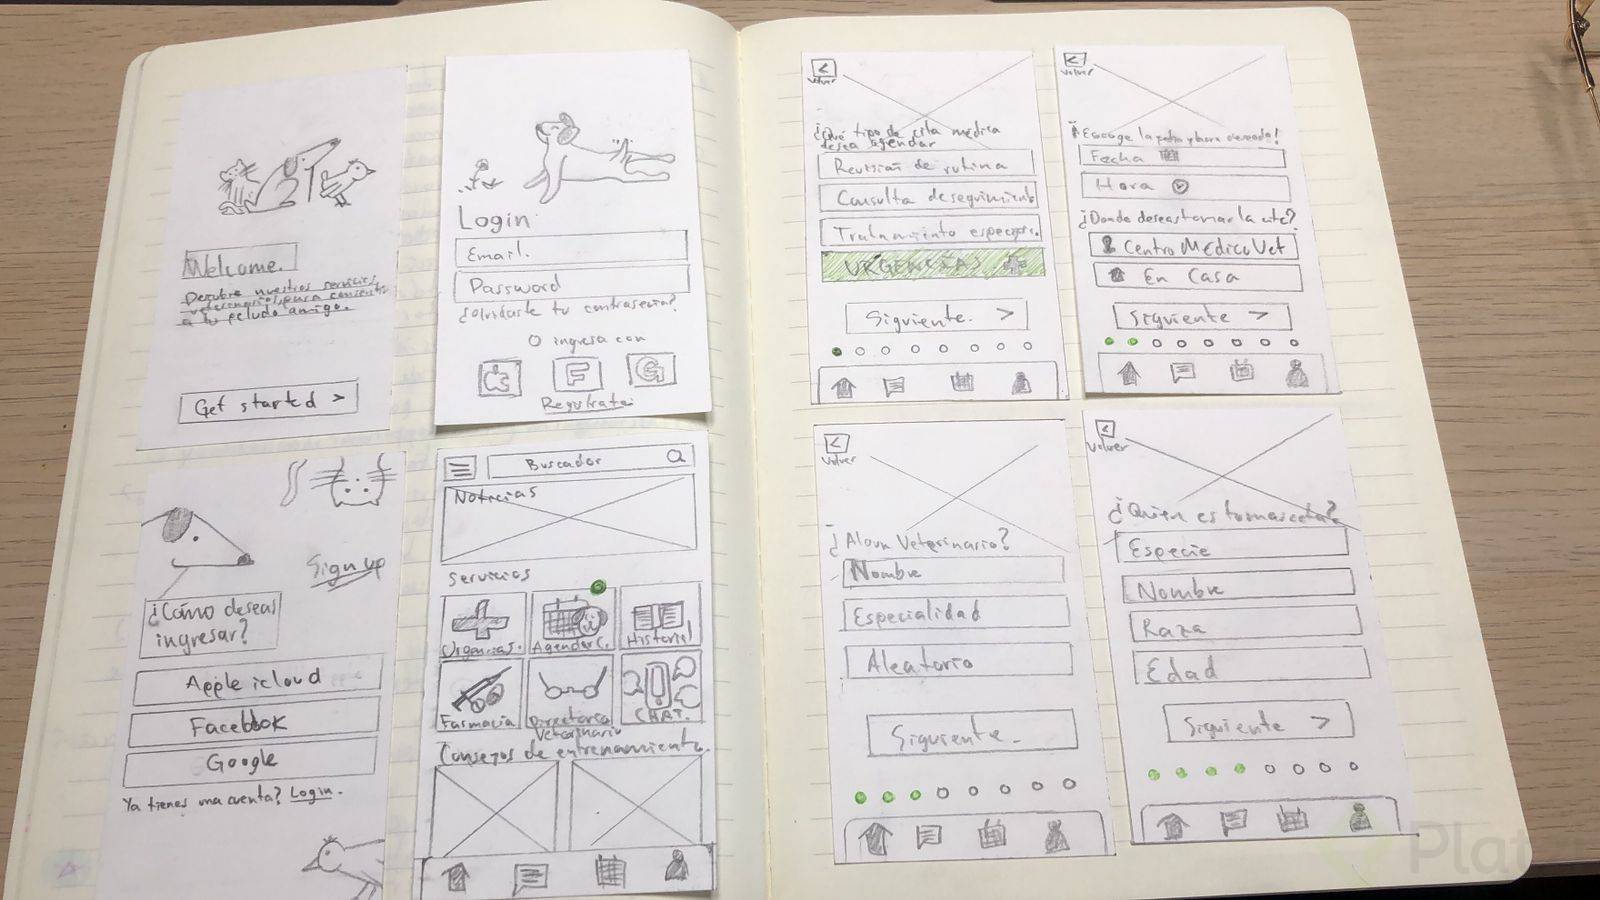 Welcome.
Descubre nuestros servicios
veterenarios, para consentir
a tu peludo amigo.
Get started >
Login
Email.
Password
¿olvidaste tu contraseña?
O ingresa con
F
G
Registrate
Sign up
¿Cómo deseas
ingresar?
Apple icloud
Facebook
Google
Ya tienes una cuenta? Login.
Buscador
Noticias
Servicios
Urgencias.
Agendar C.
Historial
Farmacia
Directorio
Veterinario
CHAT.
Consejos de entrenamiento.
<
Volver
¿Qué tipo de cita médica
desea agendar
Revisión de rutina
Consulta de seguimiento
Tratamiento especific.
URGENCIAS
Siguiente. >
<
Volver
Escoge la fecha y hora deseada!
Fecha
Hora
¿Donde deseas tomar la cita?
Centro Médico Vet
En Casa
Siguiente >
<
Volver
¿Algun Veterinario?
Nombre
Especialidad
Aleatorio
Siguiente.
<
Volver
¿Quién es tu mascota?
Especie
Nombre
Raza
Edad
Siguiente >
Plat